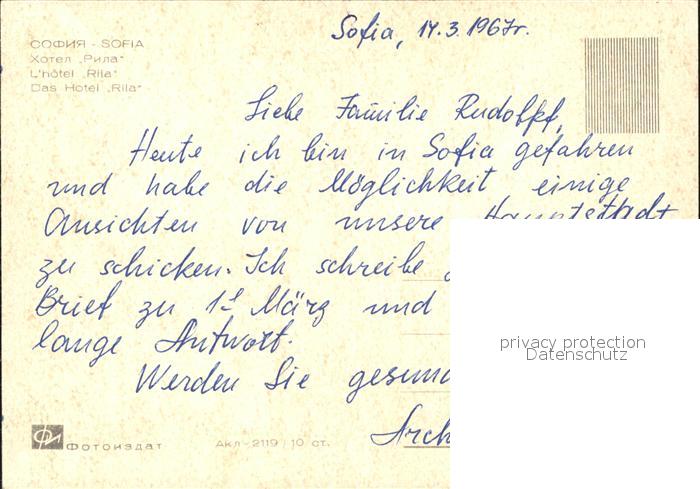 Sofia, 14.3.1967г.
СОФИЯ - SOFIA
Хотел „Рила"
L'hôtel „Rila"
Das Hotel „Rila"
Liebe Familie Rudolff,
Heute ich bin in Sofia gefahren
und habe die Möglichkeit einige
Ansichten von unsere Hauptstadt
zu schicken. Ich schreibe
Brief zu 1st März und
lange Antwort.
Werden Sie gesund
Arch
privacy protection
Datenschutz
ФИ Фотоиздат
Акл-2119 / 10 ст.